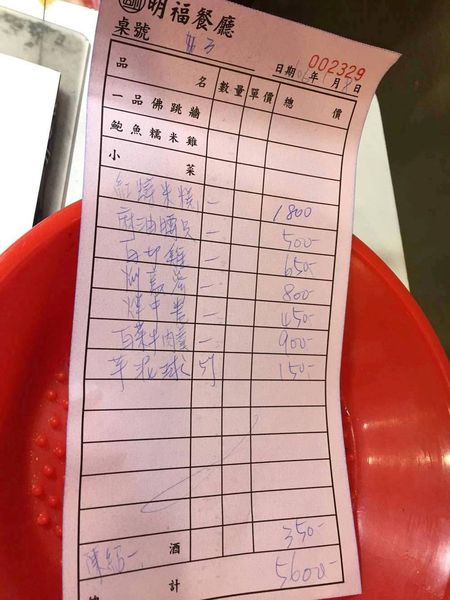 明福餐廳
桌號
002329
日期 年 月 日
品名 數量 單價 總價
一品佛跳牆
鮑魚糯米雞
小菜
紅蟳米糕 一 1800
麻油腰只 一 500-
白切雞 一 650-
一 800-
中卷 一 450-
白菜 一 900-
芋泥球 150-
陳紹一 酒 350-
總計 5600-